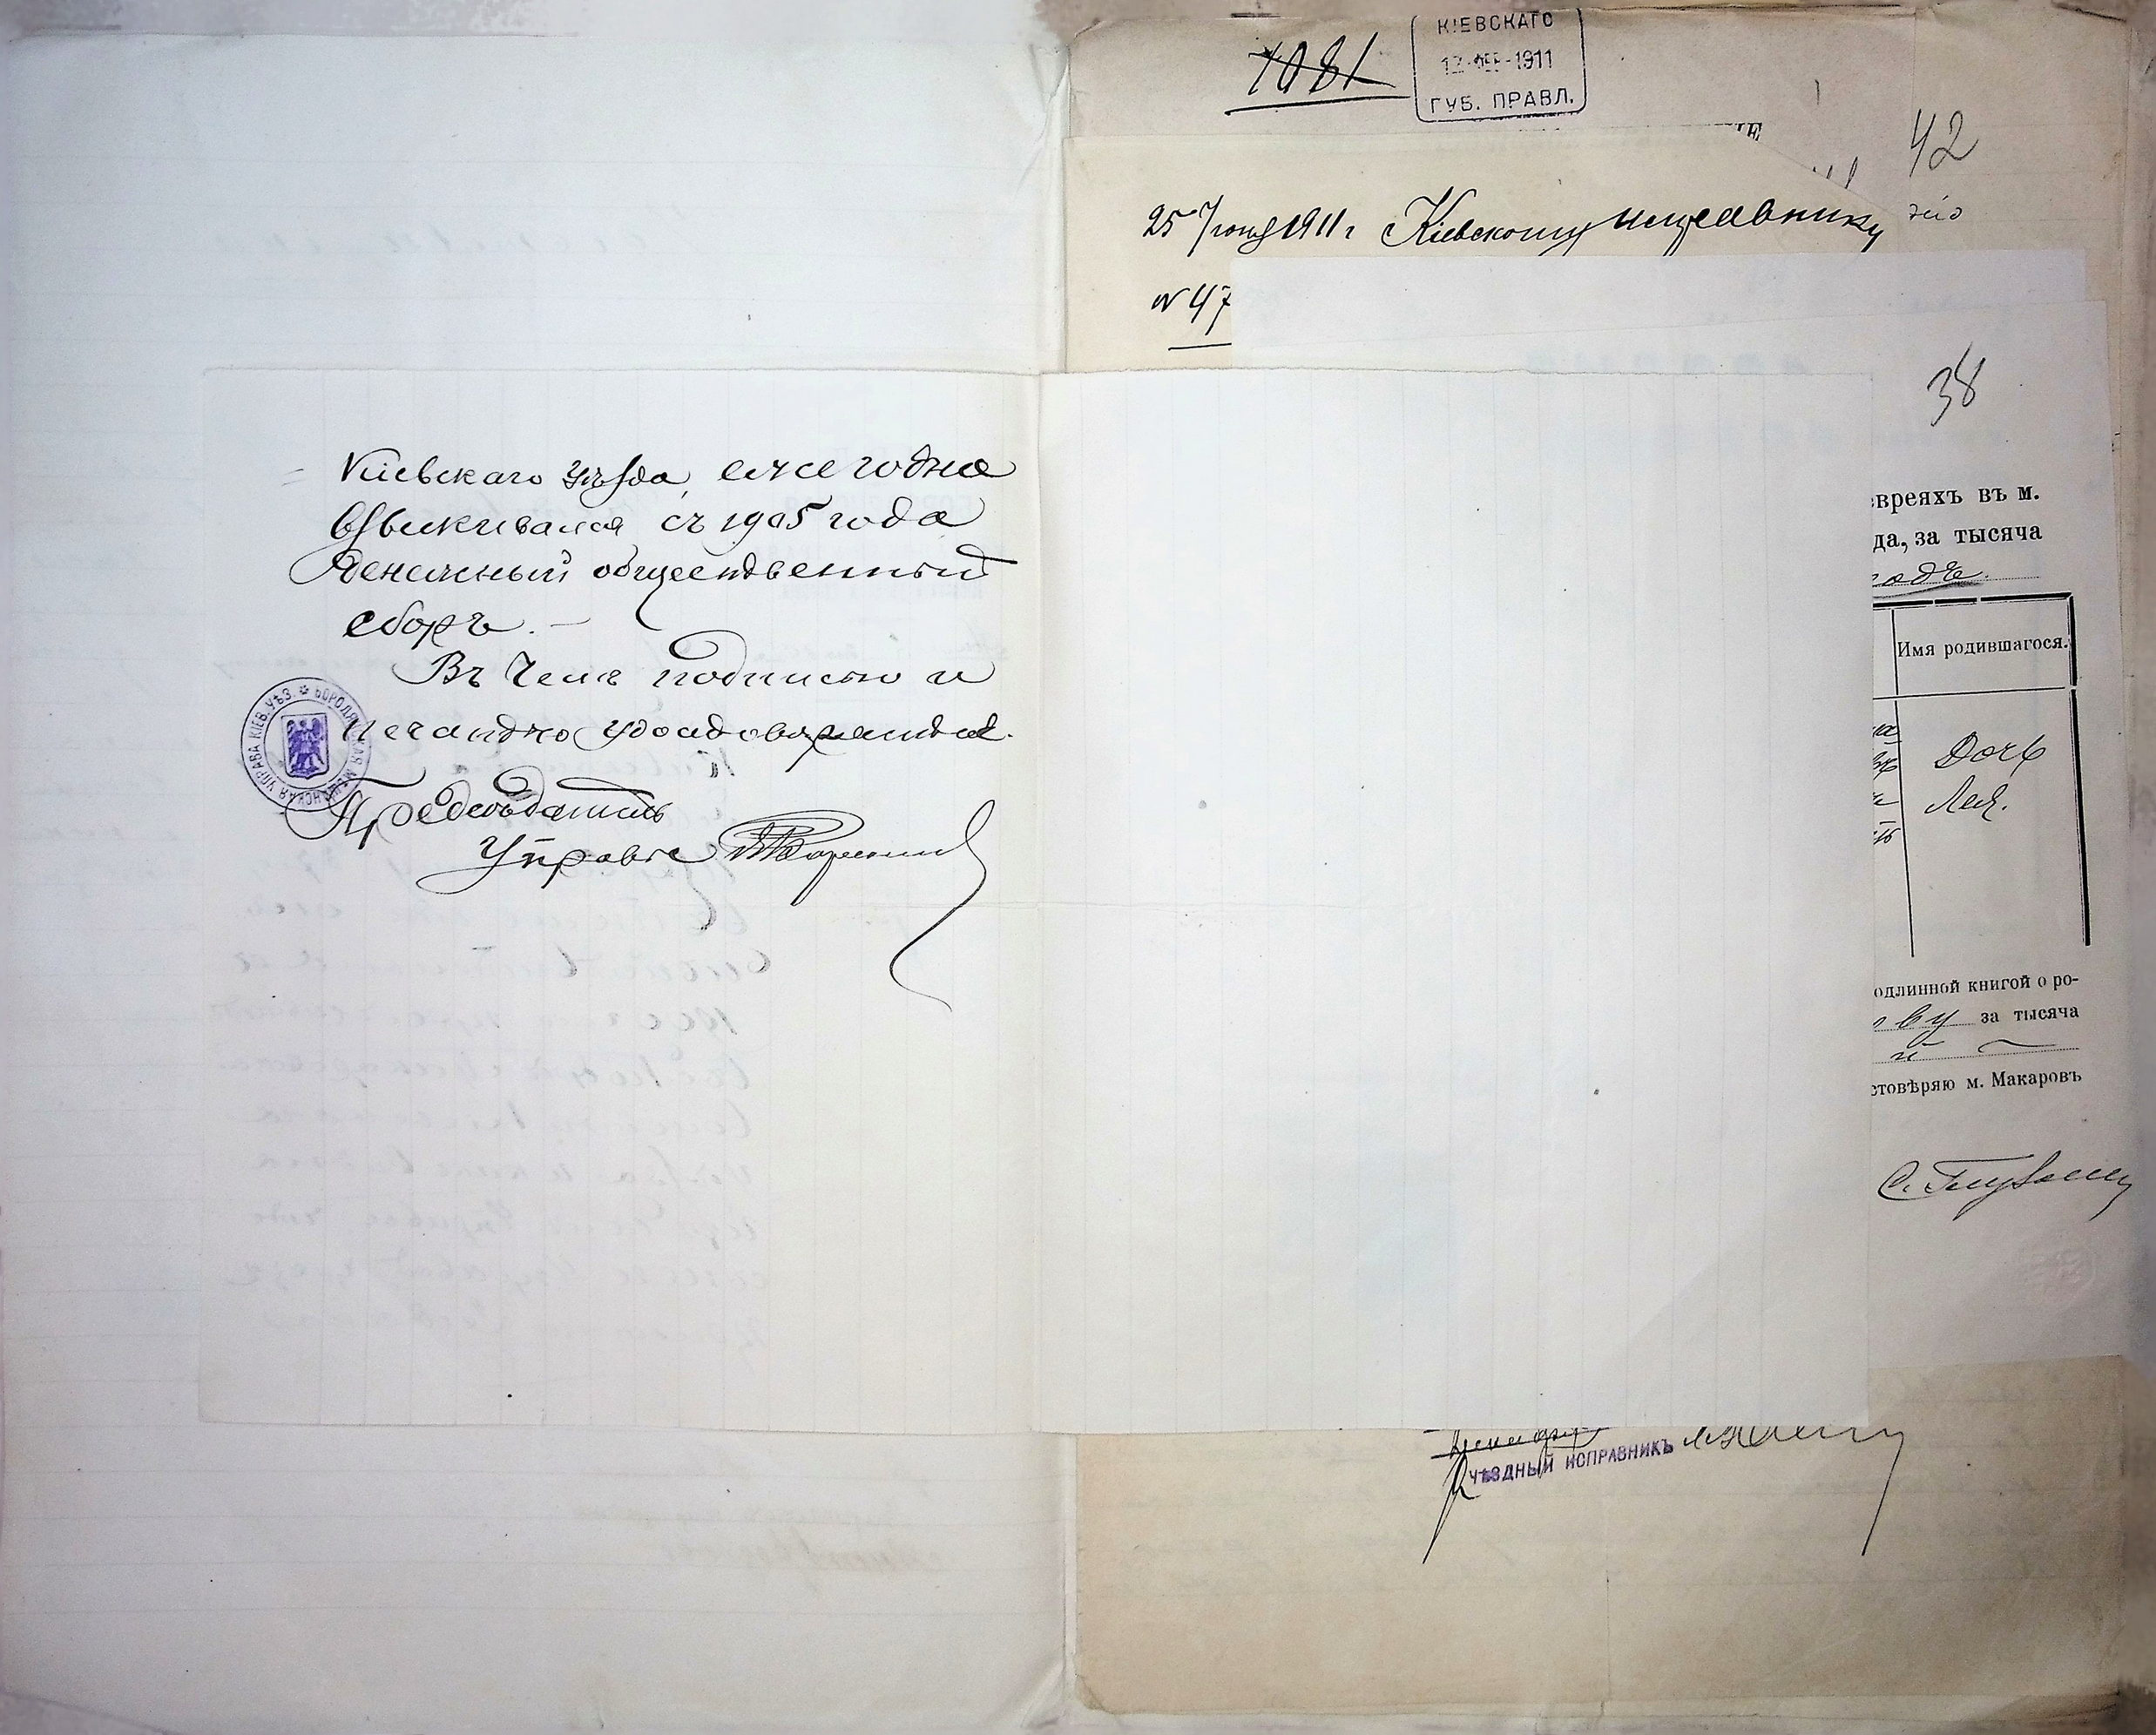 Кіевскаго уѣзда, ежегодно
взыскивался съ 1905 года
денежный общественный
сборъ. —
Въ чемъ подписью и
печатью удостовѣряется.
БОРОДЯНСКАЯ МѢЩАНСКАЯ УПРАВА КІЕВ. УѢЗ.
Предсѣдатель
Управы
1081
КІЕВСКАГО
1911
ГУБ. ПРАВЛ.
42
25 Іюня 1911 г Кіевскому исправнику
№ 47
38
евреяхъ въ м.
да, за тысяча
годъ.
Имя родившагося.
Дочь
Лея.
одлинной книгой о ро-
ву за тысяча
стовѣряю м. Макаровъ
УѢЗДНЫЙ ИСПРАВНИКЪ